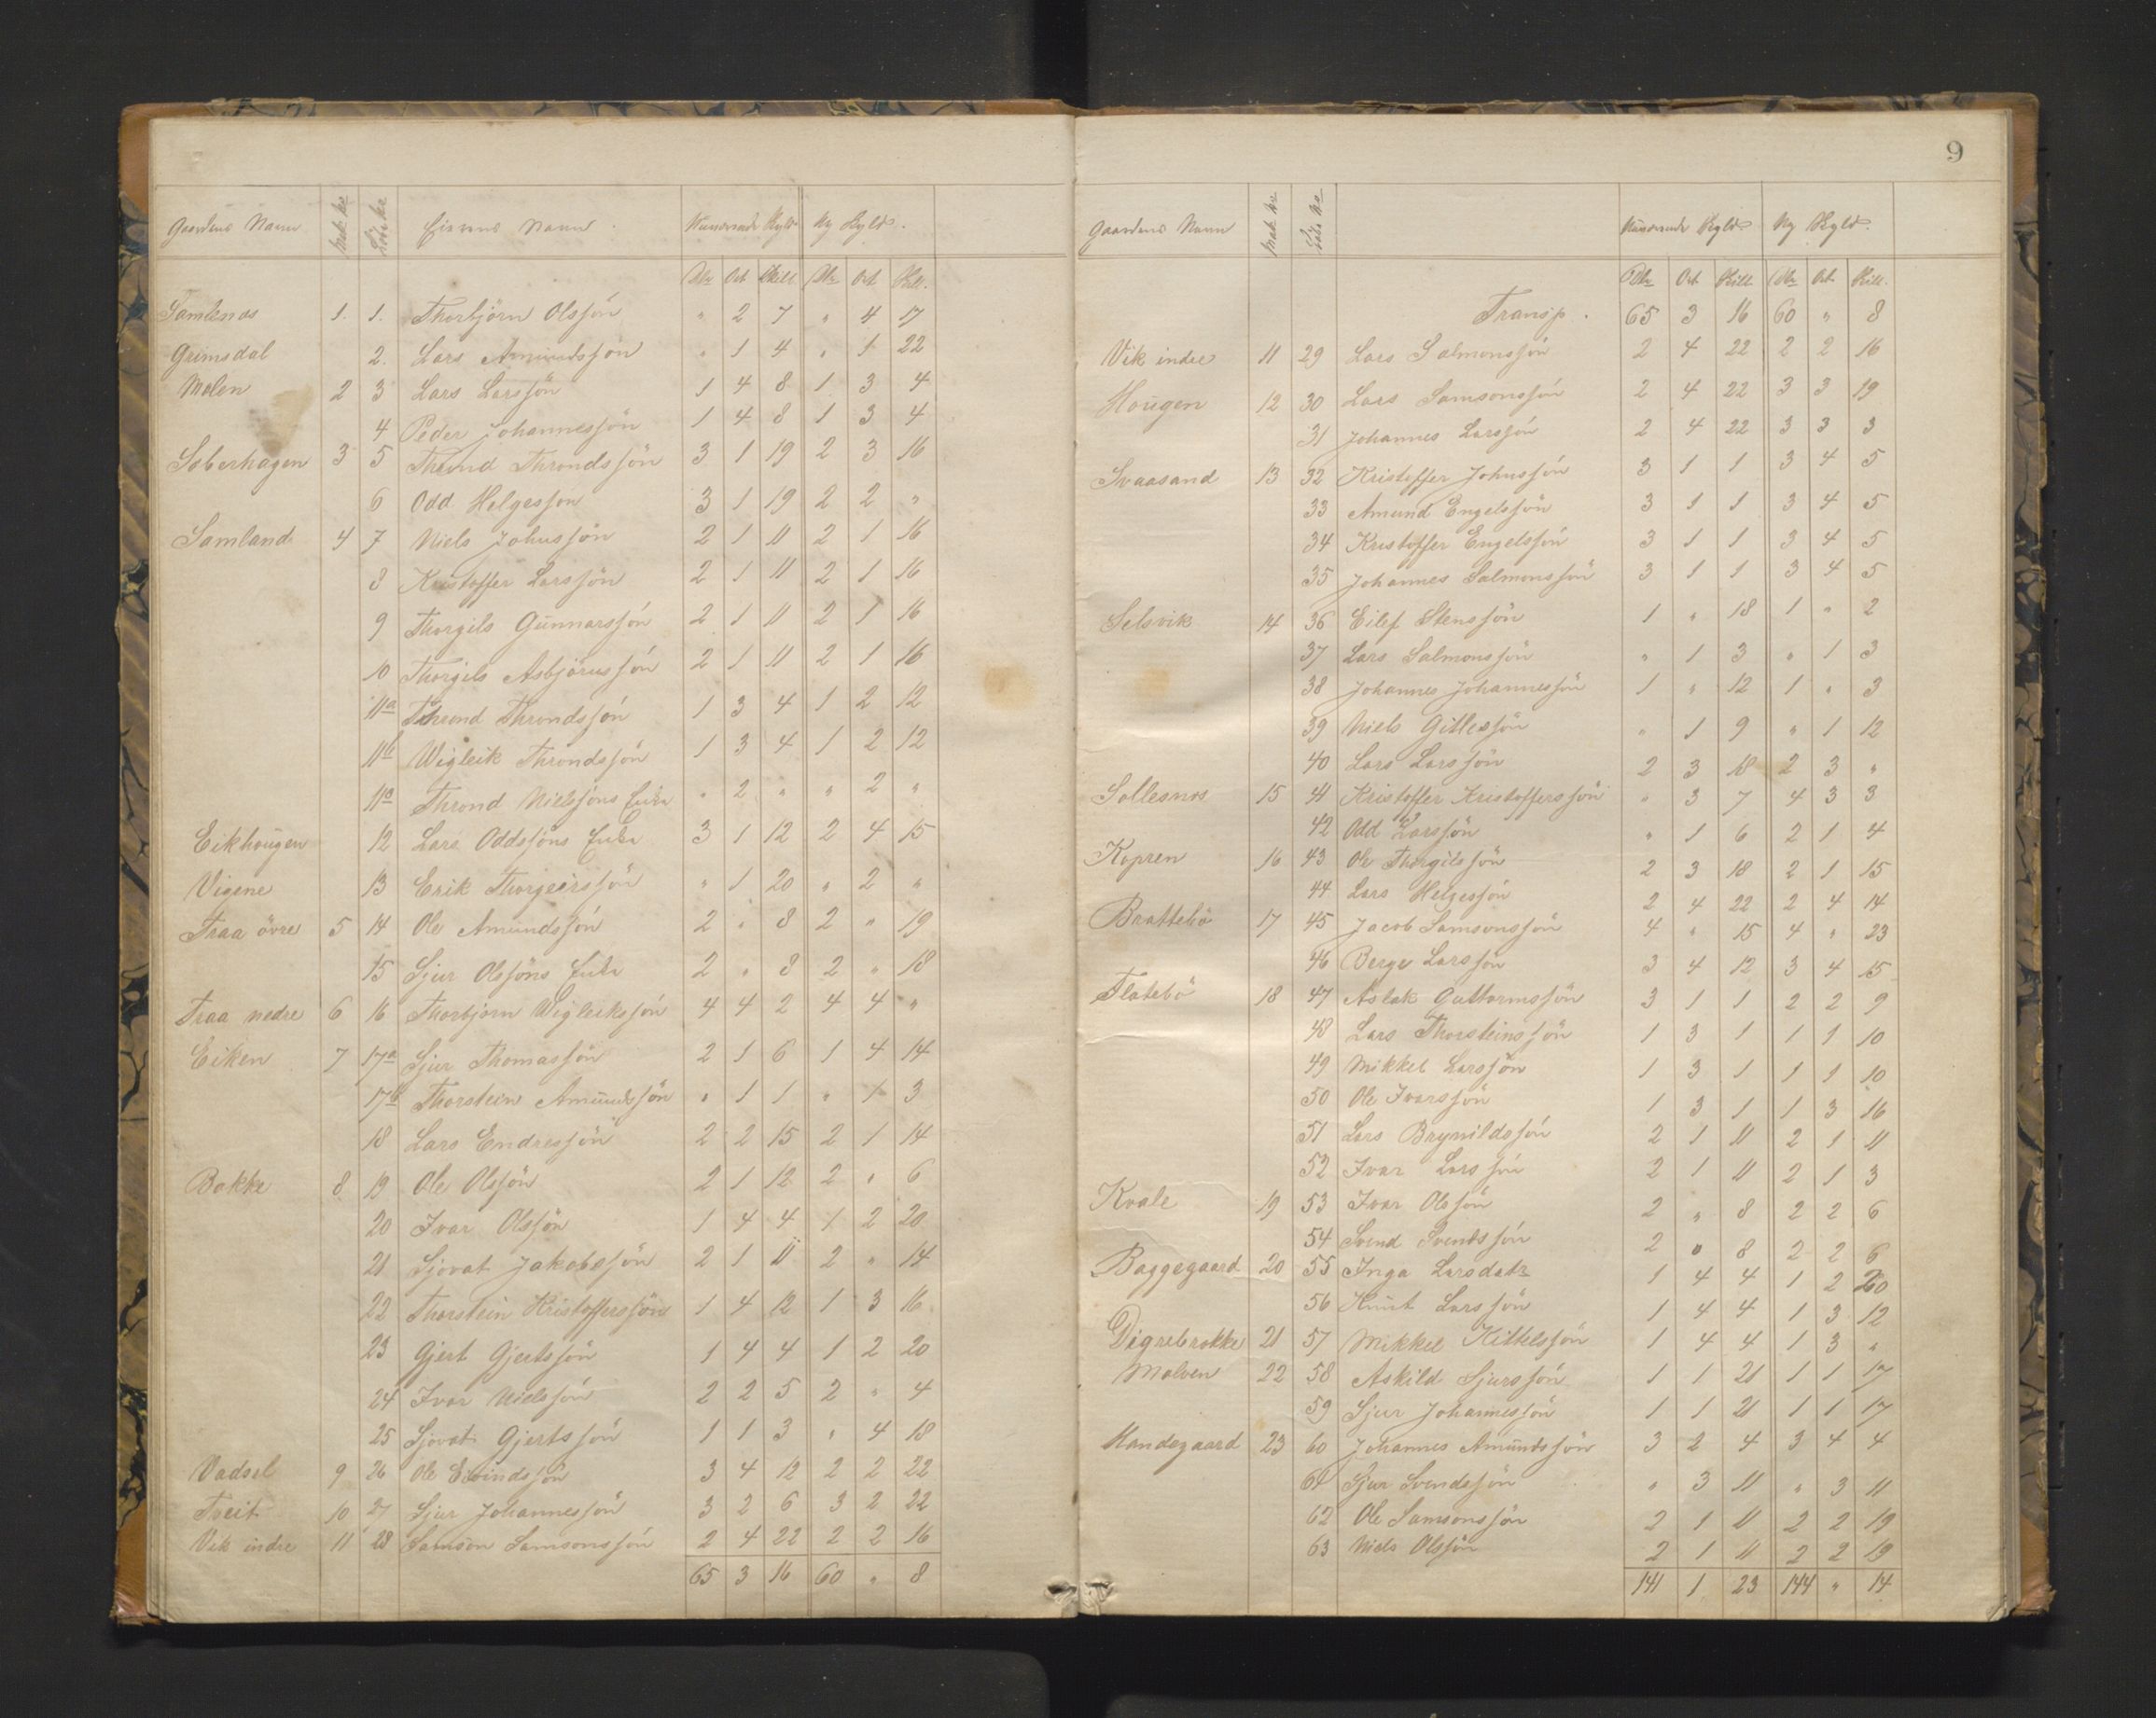 Gaardens Navn Mat. No Löbe No Eierens Navn Nuværende Skyld Ny Skyld.
Dlr Ort Skill Dlr Ort Skill.
Samlenæs 1. 1. Thorbjörn Olssön " 2 7 " 4 17
Grimsdal 2. Lars Amundssön " 1 4 " 1 22
Molen 2 3 Lars Larssön 1 4 8 1 3 4
4 Peder Johannessön 1 4 8 1 3 4
Soberhagen 3 5 Thrond Throndssön 3 1 19 2 3 16
6 Odd Helgessön 3 1 19 2 2 "
Samland 4 7 Niels Johnssön 2 1 11 2 1 16
8 Kristoffer Larssön 2 1 11 2 1 16
9 Thorgils Gunnarssön 2 1 11 2 1 16
10 Thorgils Asbjörnssön 2 1 11 2 1 16
11a Thrond Throndssön 1 3 4 1 2 12
11b Wigleik Throndssön 1 3 4 1 2 12
11c Thrond Nielssöns Enke " 2 " " 2 "
Eikhougen 12 Lars Oddssöns Enke 3 1 12 2 4 15
Vigene 13 Erik Thorgeirssön " 1 20 " 2 "
Traa övre 5 14 Ole Amundssön 2 " 8 2 " 19
15 Sjur Olssöns Enke 2 " 8 2 " 18
Traa nedre 6 16 Thorbjörn Wigleikssön 4 4 2 4 4 "
Eiken 7 17a Sjur Thomassön 2 1 6 1 4 14
17b Thorstein Amundssön " 1 1 " 1 3
18 Lars Endressön 2 2 15 2 1 14
Bakke 8 19 Ole Olssön 2 1 12 2 " 6
20 Ivar Olssön 1 4 4 1 2 20
21 Sjovat Jakobssön 2 1 11 2 " 14
22 Thorstein Kristofferssön 1 4 12 1 3 16
23 Gjert Gjertssön 1 4 4 1 2 20
24 Ivar Nielssön 2 2 5 2 " 4
25 Sjovat Gjertssön 1 1 3 " 4 18
Vadsel 9 26 Ole Eivindssön 3 4 12 2 2 22
Tveit 10 27 Sjur Johannessön 3 2 6 3 2 22
Vik indre 11 28 Samson Samsonssön 2 4 22 2 2 16
65 3 16 60 " 8
9
Gaardens Navn Mat. No Löbe No Nuværende Skyld Ny Skyld.
Dlr Ort Skill Dlr Ort Skill.
Transp. 65 3 16 60 " 8
Vik indre 11 29 Lars Salmonssön 2 4 22 2 2 16
Hougen 12 30 Lars Samsonssön 2 4 22 3 3 19
31 Johannes Larssön 2 4 22 3 3 3
Svaasand 13 32 Kristoffer Johnssön 3 1 1 3 4 5
33 Amund Engelssön 3 1 1 3 4 5
34 Kristoffer Engelssön 3 1 1 3 4 5
35 Johannes Salmonssön 3 1 1 3 4 5
Selsvik 14 36 Eilef Stenssön 1 " 18 1 " 2
37 Lars Salmonssön " 1 3 " 1 3
38 Johannes Johannessön 1 " 12 1 " 3
39 Niels Gillessön " 1 9 " 1 12
40 Lars Larssön 2 3 18 2 3 "
Sollesnæs 15 41 Kristoffer Kristofferssön " 3 7 4 3 3
42 Odd Larssön " 1 6 2 1 4
Kopren 16 43 Ole Thorgilssön 2 3 18 2 1 15
44 Lars Helgessön 2 4 22 2 4 14
Brattebö 17 45 Jacob Samsonssön 4 " 15 4 " 23
46 Berge Larssön 3 4 12 3 4 15
Flatebö 18 47 Aslak Guttormssön 3 1 1 2 2 9
48 Lars Thorsteinssön 1 3 1 1 1 10
49 Mikkel Larssön 1 3 1 1 1 10
50 Ole Ivarssön 1 3 1 1 3 16
51 Lars Brynildssön 2 1 11 2 1 11
52 Ivar Larssön 2 1 11 2 1 3
Kvale 19 53 Ivar Olssön 2 " 8 2 2 6
54 Svend Svendssön 2 " 8 2 2 6
Baggegaard 20 55 Inga Larsdatr 1 4 4 1 2 20
56 Knut Larssön 1 4 4 1 3 12
Digrebrække 21 57 Mikkel Kittelssön 1 4 4 1 3 "
Molven 22 58 Askild Sjurssön 1 1 21 1 1 17
59 Sjur Johannessön 1 1 21 1 1 17
Handegaard 23 60 Johannes Amundssön 3 2 4 3 4 4
61 Sjur Svendssön " 3 11 " 3 11
62 Ole Samsonssön 2 1 11 2 2 19
63 Niels Olssön 2 1 11 2 2 19
141 1 23 144 " 14